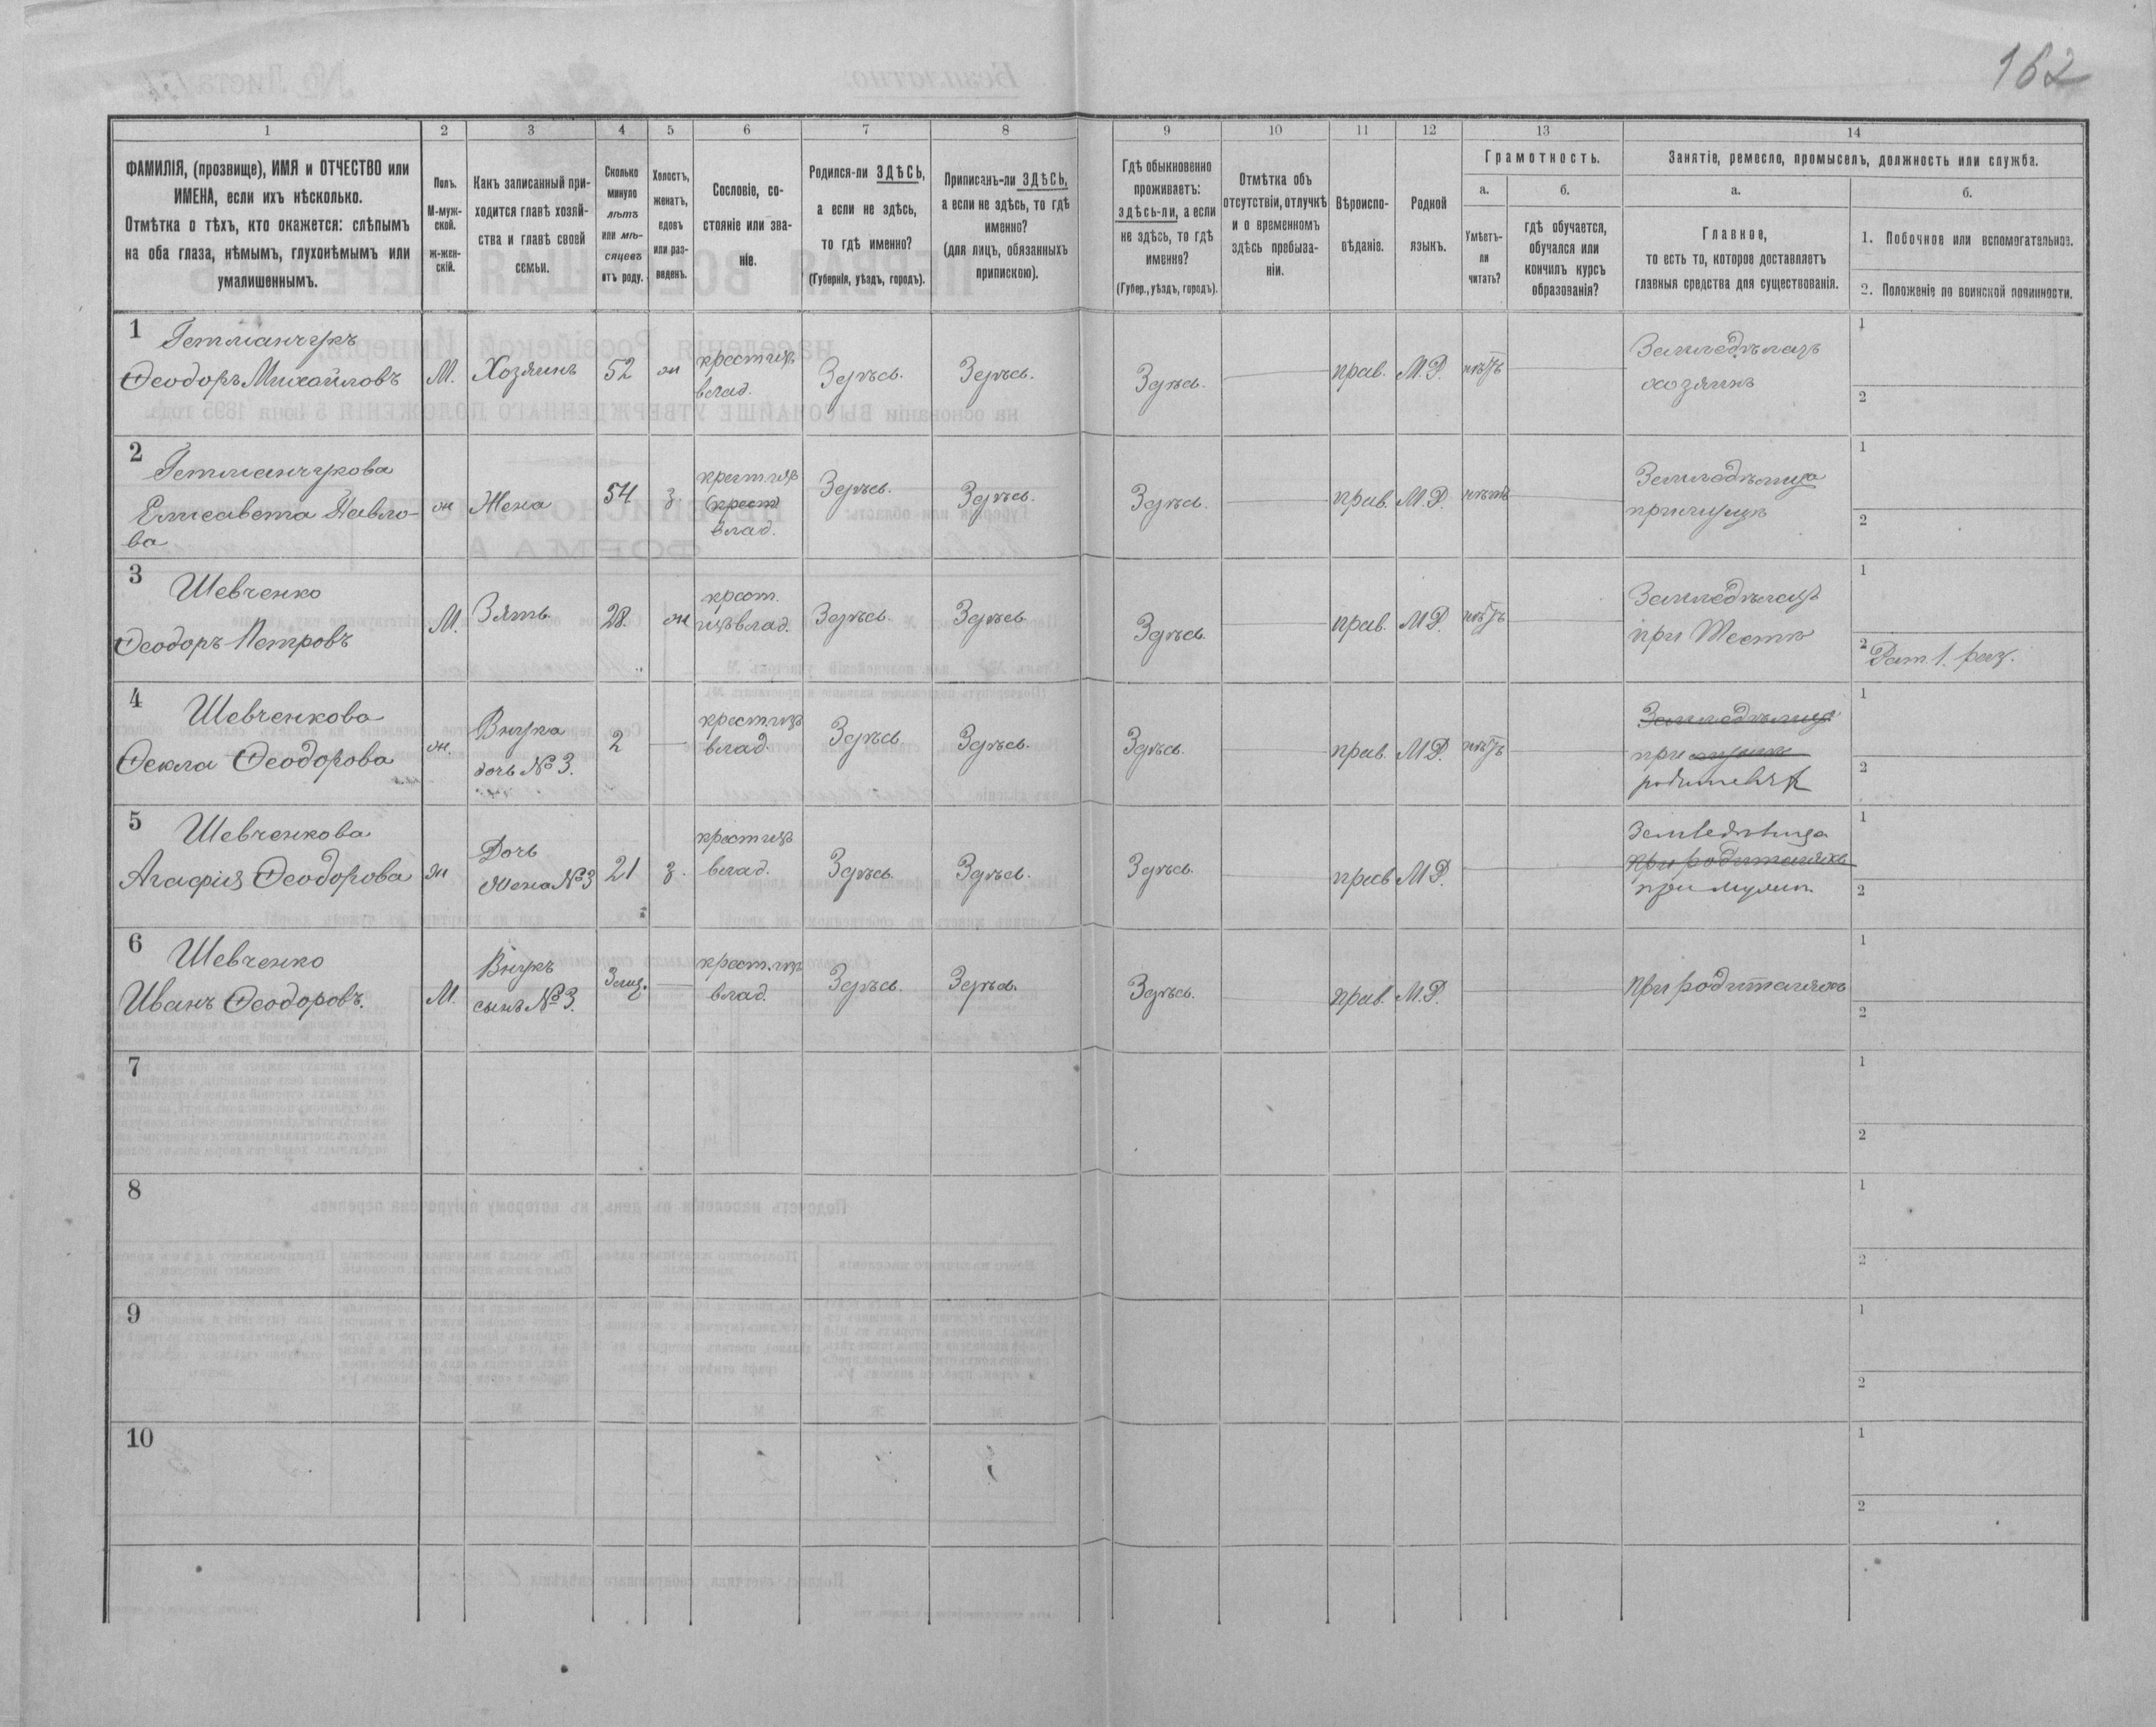 162
1 2 3 4 5 6 7 8 9 10 11 12 13 14
ФАМИЛІЯ, (прозвище), ИМЯ и ОТЧЕСТВО или
ИМЕНА, если ихъ нѣсколько.
Отмѣтка о тѣхъ, кто окажется: слѣпымъ
на оба глаза, нѣмымъ, глухонѣмымъ или
умалишеннымъ.
Полъ.
М-муж-
ской.
ж-жен-
скій.
Какъ записанный при-
ходится главѣ хозяй-
ства и главѣ своей
семьи.
Сколько
минуло
лѣтъ
или мѣ-
сяцевъ
отъ роду.
Холостъ,
женатъ,
вдовъ
или раз-
веденъ.
Сословіе, со-
стояніе или зва-
ніе.
Родился-ли ЗДѢСЬ,
а если не здѣсь,
то гдѣ именно?
(Губернія, уѣздъ, городъ).
Приписанъ-ли ЗДѢСЬ,
а если не здѣсь, то гдѣ
именно?
(для лицъ, обязанныхъ
припискою).
Гдѣ обыкновенно
проживаетъ:
здѣсь-ли, а если
не здѣсь, то гдѣ
именно?
(Губер., уѣздъ, городъ).
Отмѣтка объ
отсутствіи, отлучкѣ
и о временномъ
здѣсь пребыва-
ніи.
Вѣроиспо-
вѣданіе.
Родной
языкъ.
Грамотность.
а.
Умѣетъ-
ли
читать?
б.
гдѣ обучается,
обучался или
кончилъ курсъ
образованія?
Занятіе, ремесло, промыселъ, должность или служба.
а.
Главное,
то есть то, которое доставляетъ
главныя средства для существованія.
б.
1. Побочное или вспомогательное.
2. Положеніе по воинской повинности.
1 Гетманчукъ
Ѳеодоръ Михайловъ
М.
Хозяинъ
52
ж
влад.
Здѣсь.
Здѣсь.
Здѣсь.
прав.
М.Р.
нѣтъ
Земледѣлецъ
хозяинъ
1
2
2 Гетманчукова
Елисавета Павло-
ва
ж
Жена
54
з.
(крест)
влад.
Здѣсь.
Здѣсь.
Здѣсь.
прав.
М.Р.
нѣтъ
Земледѣлица
при мужѣ
1
2
3 Шевченко
Ѳеодоръ Петровъ
М.
Зять
28
ж
крест.
Здѣсь.
Здѣсь
Здѣсь
прав.
М.Р.
нѣтъ
Земледѣлецъ
при Тестѣ
1
2 Рат. 1. раз.
4 Шевченкова
Ѳекла Ѳеодорова
ж.
Внука
дочь № 3.
2
влад.
Здѣсь
Здѣсь.
Здѣсь
прав.
М.Р.
нѣтъ
Земледѣлица
при мужѣ
родителяхъ
1
2
5 Шевченкова
Агафія Ѳеодорова
ж
Дочь
Жена №3
21
з.
влад.
Здѣсь
Здѣсь.
Здѣсь
прав
М.Р.
Земледѣлица
при родителяхъ
при мужѣ
1
2
6 Шевченко
Иванъ Ѳеодоровъ.
М.
Внукъ
сынъ № 3.
3 мѣц.
влад.
Здѣсь.
Здѣсь.
Здѣсь.
прав.
М.Р.
при родителяхъ
1
2
7
1
2
8
1
2
9
1
2
10
1
2